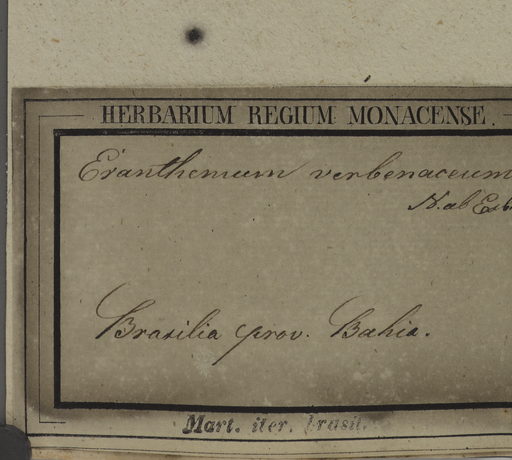 HERBARIUM REGIUM MONACENSE.
Eranthemum verbenaceum
N. ab Esb
Brasilia prov. Bahia.
Mart. iter. brasil.